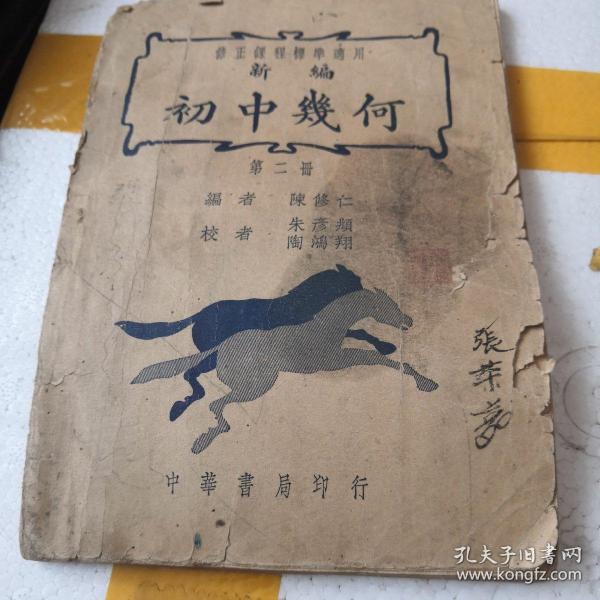 修正課程標準適用
新編
初中幾何
第二冊
編者 陳修仁
校者 朱彥頫
陶鴻翔
張
中華書局印行
孔夫子旧书网
www.kongfz.com